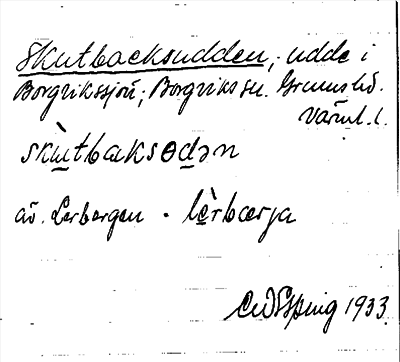 Skutbacksudden, udde i
Borgvikssjön; Borgviks sn. Grums hd.
Värml. l.
skùtbaksɵdən
av. Lerbergen · lèrbærja
1933